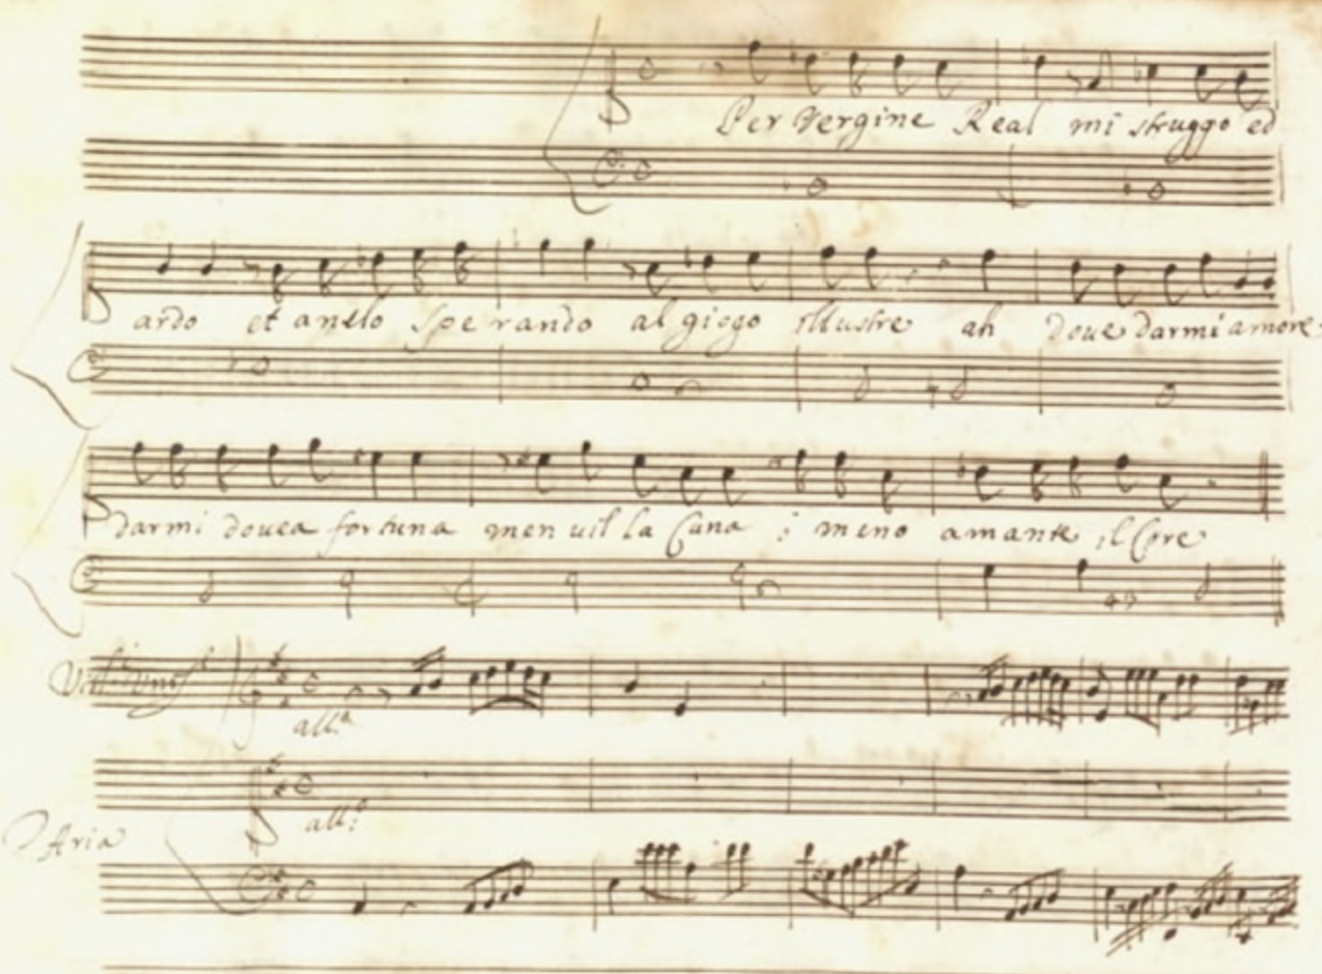 Per Vergine Real mi struggo ed
ardo et anelo sperando al giogo illustre ah doue darmi amore
darmi douea fortuna men uil la Cuna ò meno amante il Core
all.º
all.º
Aria